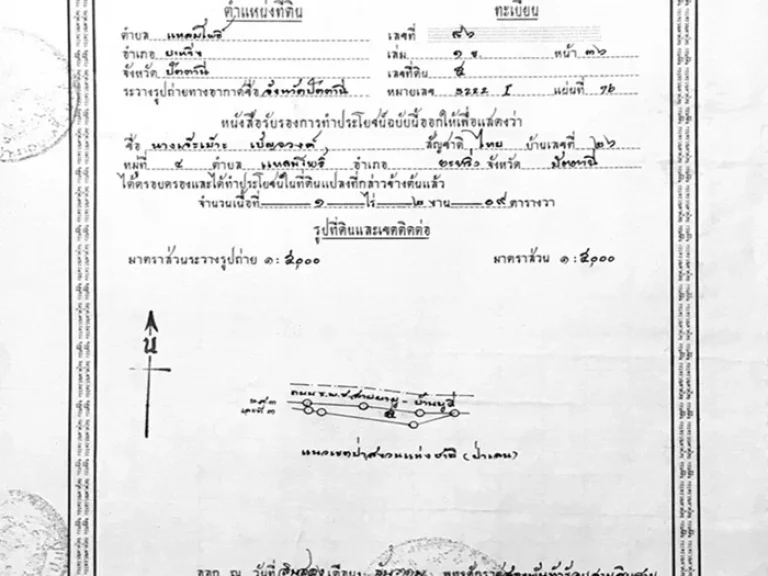 ตำแหน่งที่ดิน
ทะเบียน
ตำบล แหลมโพธิ์
เลขที่ ๘๖
อำเภอ ยะหริ่ง
เล่ม ๑ ข. หน้า ๓๖
จังหวัด ปัตตานี
เลขที่ดิน ๕
ระวางรูปถ่ายทางอากาศชื่อ จังหวัดปัตตานี
หมายเลข 5222 I แผ่นที่ 76
หนังสือรับรองการทำประโยชน์ฉบับนี้ออกให้เพื่อแสดงว่า
ชื่อ สัญชาติ ไทย บ้านเลขที่ ๒๖
หมู่ที่ ๔ ตำบล แหลมโพธิ์ อำเภอ ยะหริ่ง จังหวัด ปัตตานี
ได้ครอบครองและได้ทำประโยชน์ในที่ดินแปลงที่กล่าวข้างต้นแล้ว
จำนวนเนื้อที่ ๑ ไร่ ๒ งาน ๐๙ ตารางวา
รูปที่ดินและเขตติดต่อ
มาตราส่วนระวางรูปถ่าย ๑ : ๕๐๐๐
มาตราส่วน ๑ : ๕๐๐๐
น
ถนน ร.พ.ช. สาย - บ้านบูดี
๕
แนวเขตป่าสงวนแห่งชาติ (ป่าเลน)
ออก ณ วันที่ เดือน